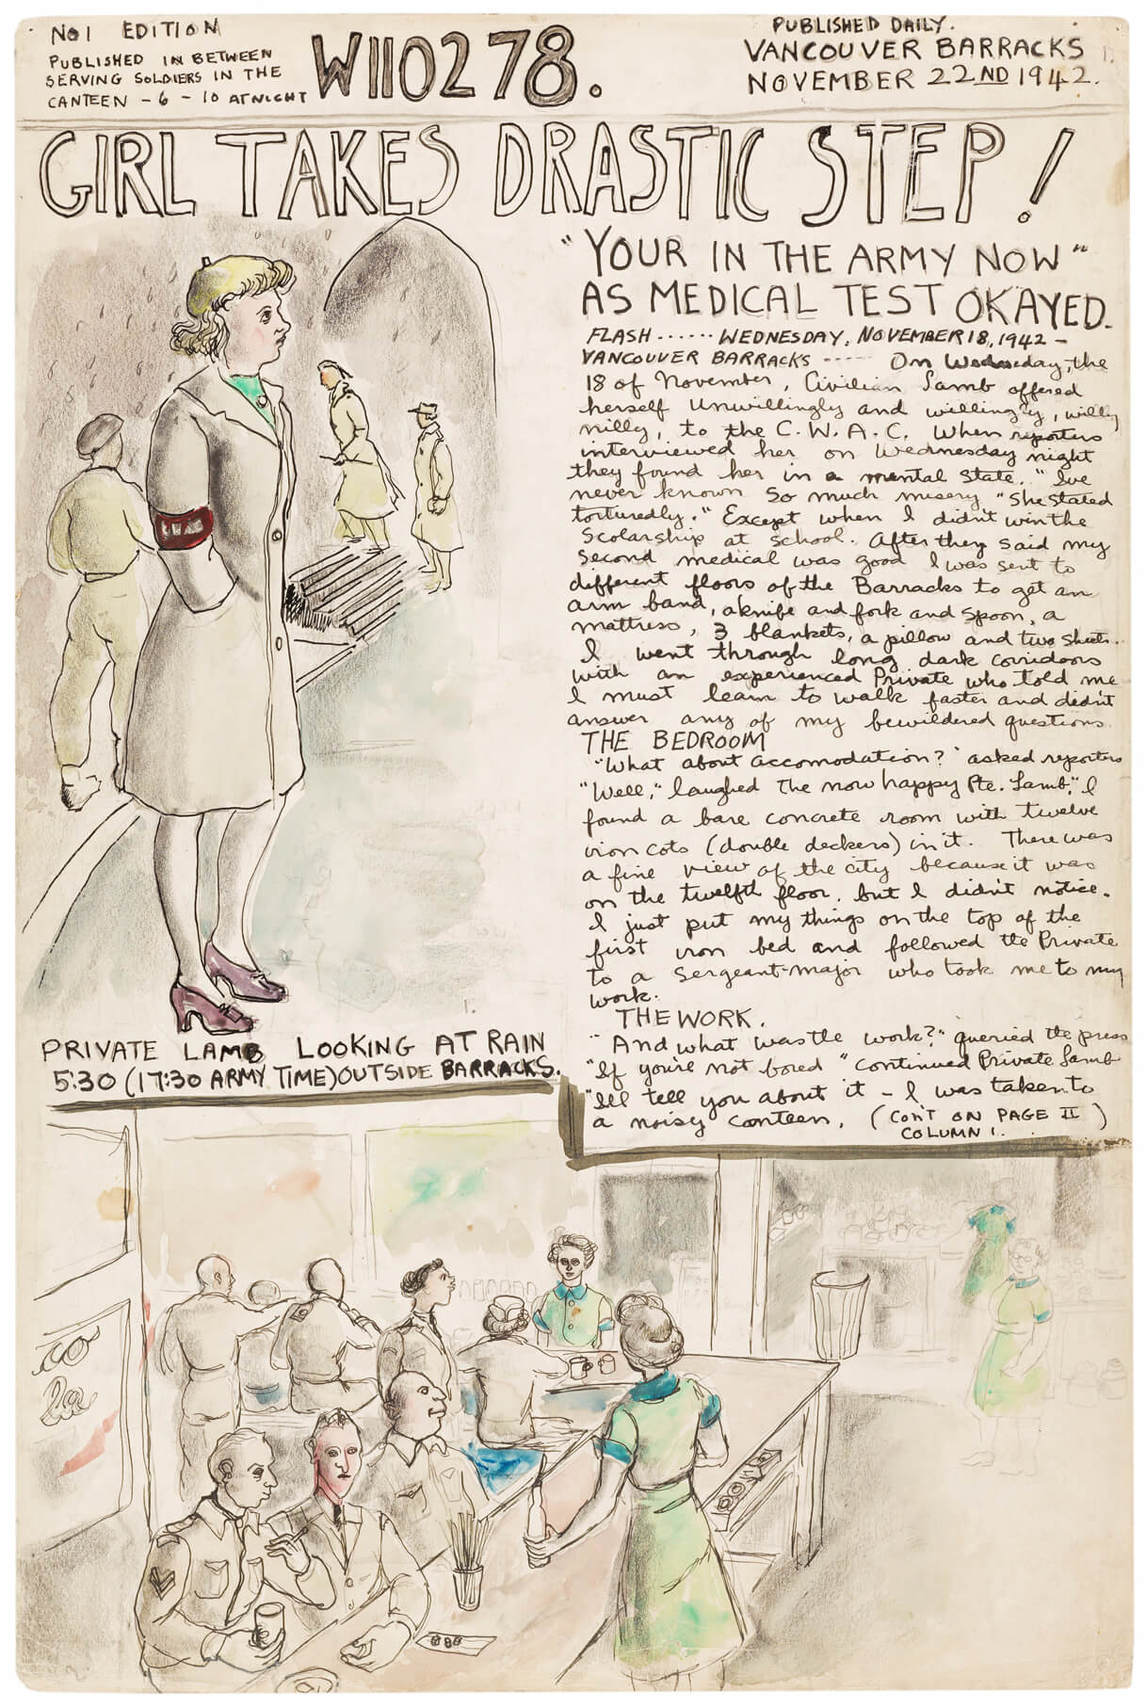 No 1 EDITION
PUBLISHED IN BETWEEN
SERVING SOLDIERS IN THE
CANTEEN - 6 - 10 AT NIGHT
W110278.
PUBLISHED DAILY.
VANCOUVER BARRACKS
NOVEMBER 22ND 1942.
GIRL TAKES DRASTIC STEP!
"YOUR IN THE ARMY NOW"
AS MEDICAL TEST OKAYED.
FLASH ...... WEDNESDAY, NOVEMBER 18, 1942 -
VANCOUVER BARRACKS ----- On Wednesday, the
18 of November, Civilian Lamb offered
herself unwillingly and willingly, willy
nilly, to the C.W.A.C. When reporters
interviewed her on Wednesday night
they found her in a mental state. "I've
never known so much misery "she stated
torturedly." Except when I didn't win the
Scolarship at school. After they said my
second medical was good I was sent to
different floors of the Barracks to get an
arm band, a knife and fork and spoon, a
mattress, 3 blankets, a pillow and two sheets.
I went through long dark corridors
with an experienced Private who told me
I must learn to walk faster and didn't
answer any of my bewildered questions.
THE BEDROOM
"What about accomodation?" asked reporters
"Well," laughed the now happy Pte. Lamb," I
found a bare concrete room with twelve
iron cots (double deckers) in it. There was
a fine view of the city because it was
on the twelfth floor, but I didn't notice.
I just put my things on the top of the
first iron bed and followed the Private
to a Sergeant-major who took me to my
work.
THE WORK.
"And what was the work?" queried the press
"If you're not bored "continued Private Lamb
"I'll tell you about it - I was taken to
a noisy canteen. (CON'T ON PAGE II)
COLUMN 1.
PRIVATE LAMB LOOKING AT RAIN
5:30 (17:30 ARMY TIME) OUTSIDE BARRACKS.